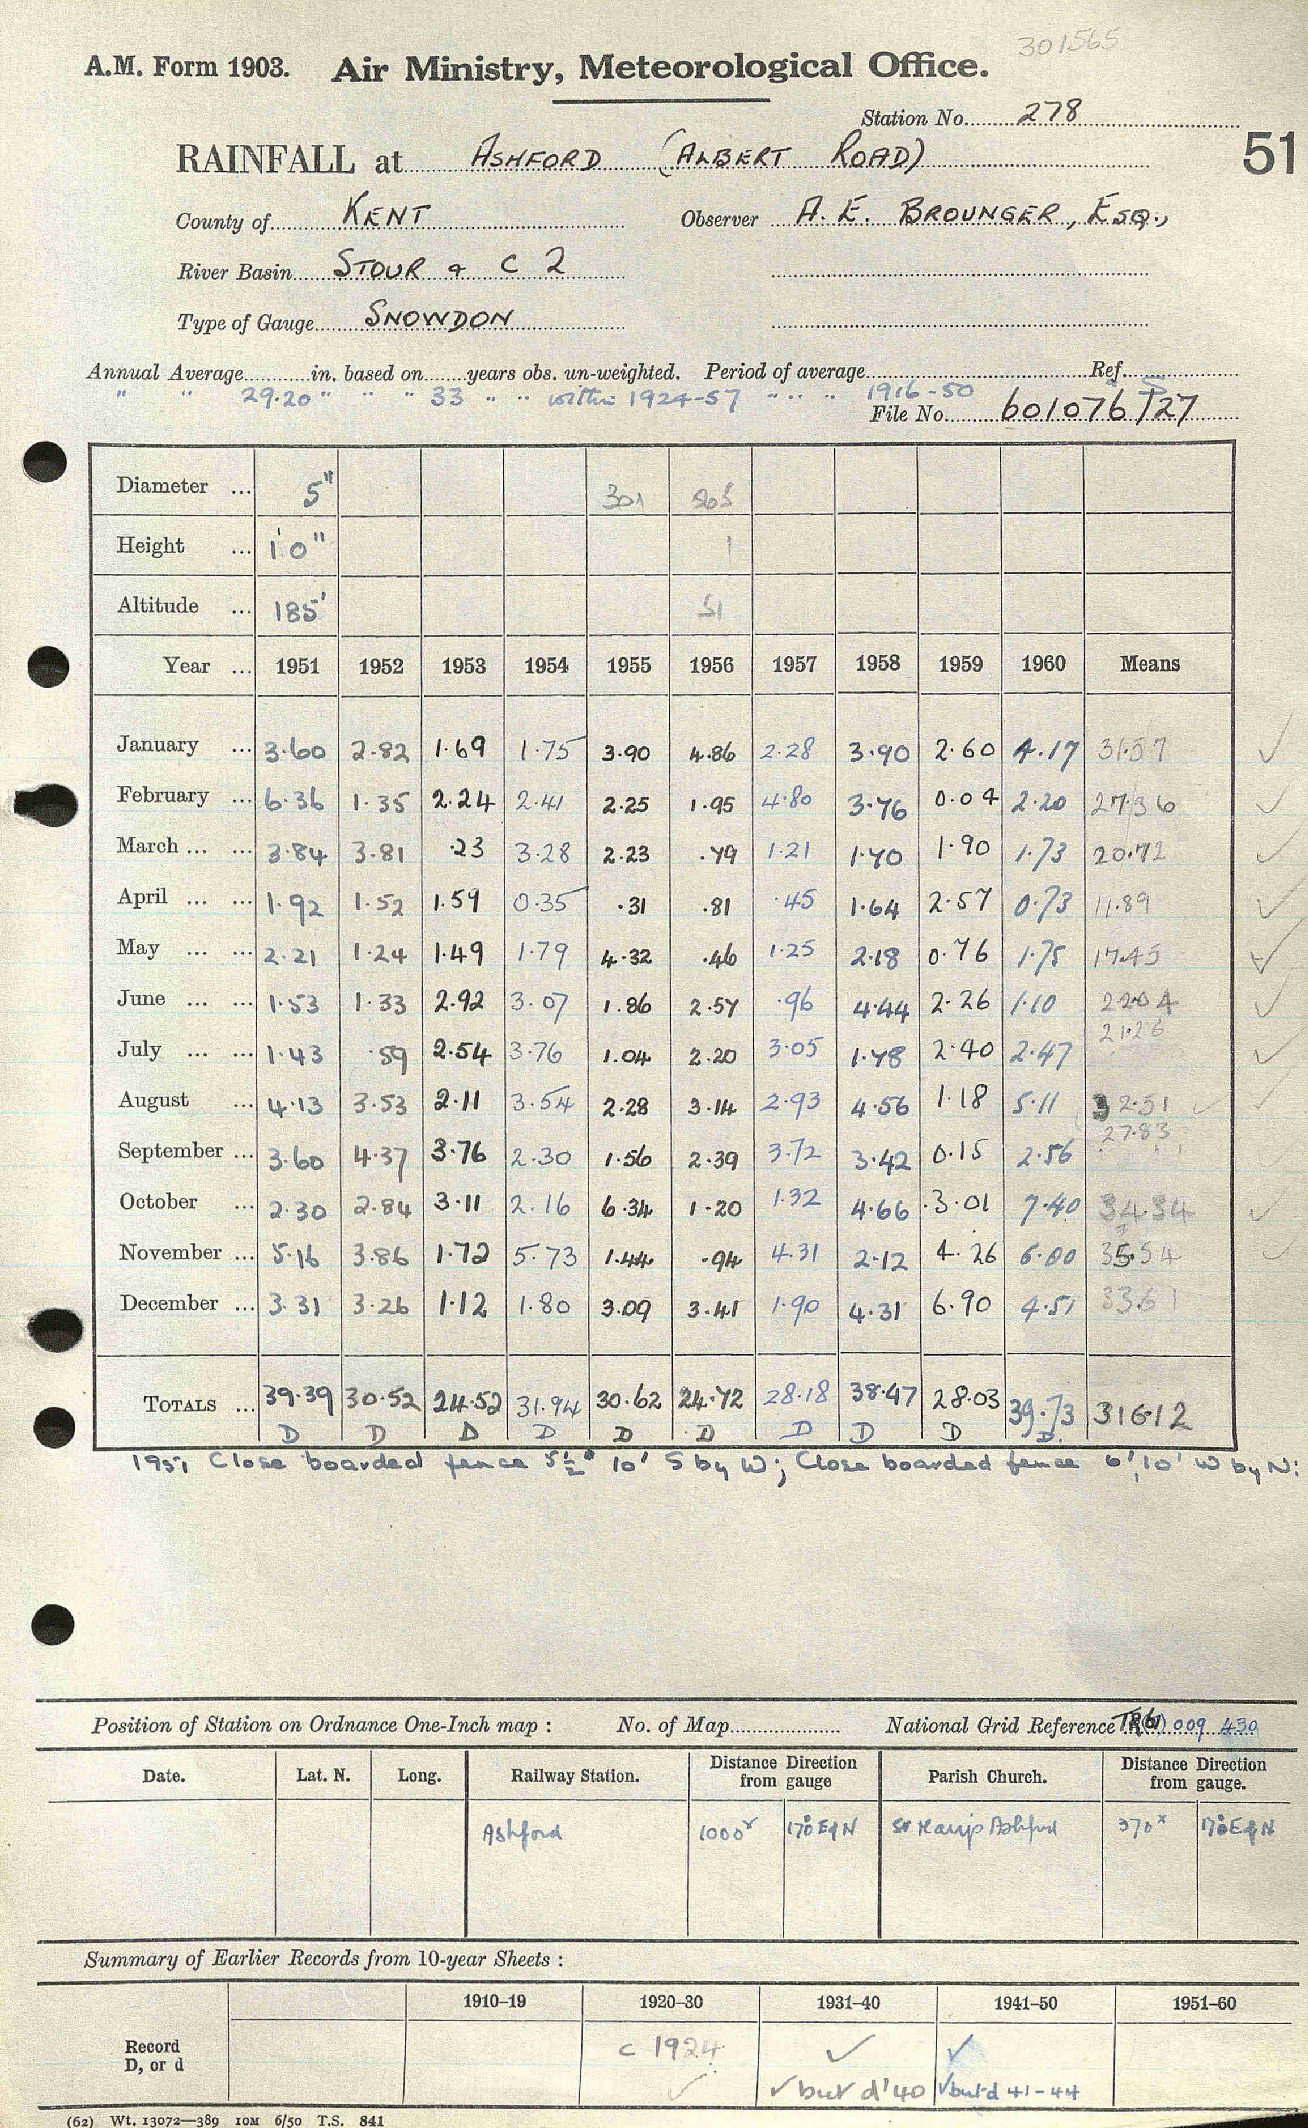 301565
A.M. Form 1903. Air Ministry, Meteorological Office.
Station No. 278
RAINFALL at ASHFORD (ALBERT ROAD) 51
County of KENT Observer A. E. BROUNGER, ESQ.,
River Basin STOUR & C 2
Type of Gauge SNOWDON
Annual Average in. based on years obs. un-weighted. Period of average Ref.
" " 29.20 " " " 33 " " within 1924-57 " " " 1916-50
File No. 601076/27
Diameter ... 5" 301 565
Height ... 1'0" 1
Altitude ... 185' 51
Year ... 1951 1952 1953 1954 1955 1956 1957 1958 1959 1960 Means
January ... 3.60 2.82 1.69 1.75 3.90 4.86 2.28 3.90 2.60 4.17 31.57 ✓
February ... 6.36 1.35 2.24 2.41 2.25 1.95 4.80 3.76 0.04 2.20 27.36 ✓
March ... ... 3.84 3.81 .23 3.28 2.23 .79 1.21 1.70 1.90 1.73 20.72 ✓
April ... ... 1.92 1.52 1.59 0.35 .31 .81 .45 1.64 2.57 0.73 11.89 ✓
May ... ... 2.21 1.24 1.49 1.79 4.32 .46 1.25 2.18 0.76 1.75 17.45 ✓
June ... ... 1.53 1.33 2.92 3.07 1.86 2.57 .96 4.44 2.26 1.10 22.04 ✓
July ... ... 1.43 .59 2.54 3.76 1.04 2.20 3.05 1.78 2.40 2.47 21.26 ✓
August ... 4.13 3.53 2.11 3.54 2.28 3.14 2.93 4.56 1.18 5.11 32.51 ✓ ✓
September ... 3.60 4.37 3.76 2.30 1.56 2.39 3.72 3.42 0.15 2.56 27.83
October ... 2.30 2.84 3.11 2.16 6.34 1.20 1.32 4.66 3.01 7.40 34.34 ✓
November ... 5.16 3.86 1.72 5.73 1.44 .94 4.31 2.12 4.26 6.00 35.54 ✓
December ... 3.31 3.26 1.12 1.80 3.09 3.41 1.90 4.31 6.90 4.51 33.61
TOTALS ... 39.39 30.52 24.52 31.94 30.62 24.72 28.18 38.47 28.03 39.73 316.12
D D D D D D D D D D.
1951 Close boarded fence 5½" 10' S by W; Close boarded fence 6', 10' W by N:
Position of Station on Ordnance One-Inch map : No. of Map National Grid Reference 009 430
Date. Lat. N. Long. Railway Station. Distance from gauge Direction Parish Church. Distance from gauge. Direction
Ashford 1000ˣ 17° E of N St Mary's Ashford 370ˣ 17° E of N
Summary of Earlier Records from 10-year Sheets :
1910–19 1920–30 1931–40 1941–50 1951–60
Record c 1924 ✓ ✓
D, or d ✓ ✓ but d '40 ✓ but d 41-44
(62) Wt. 13072—389 10M 6/50 T.S. 841